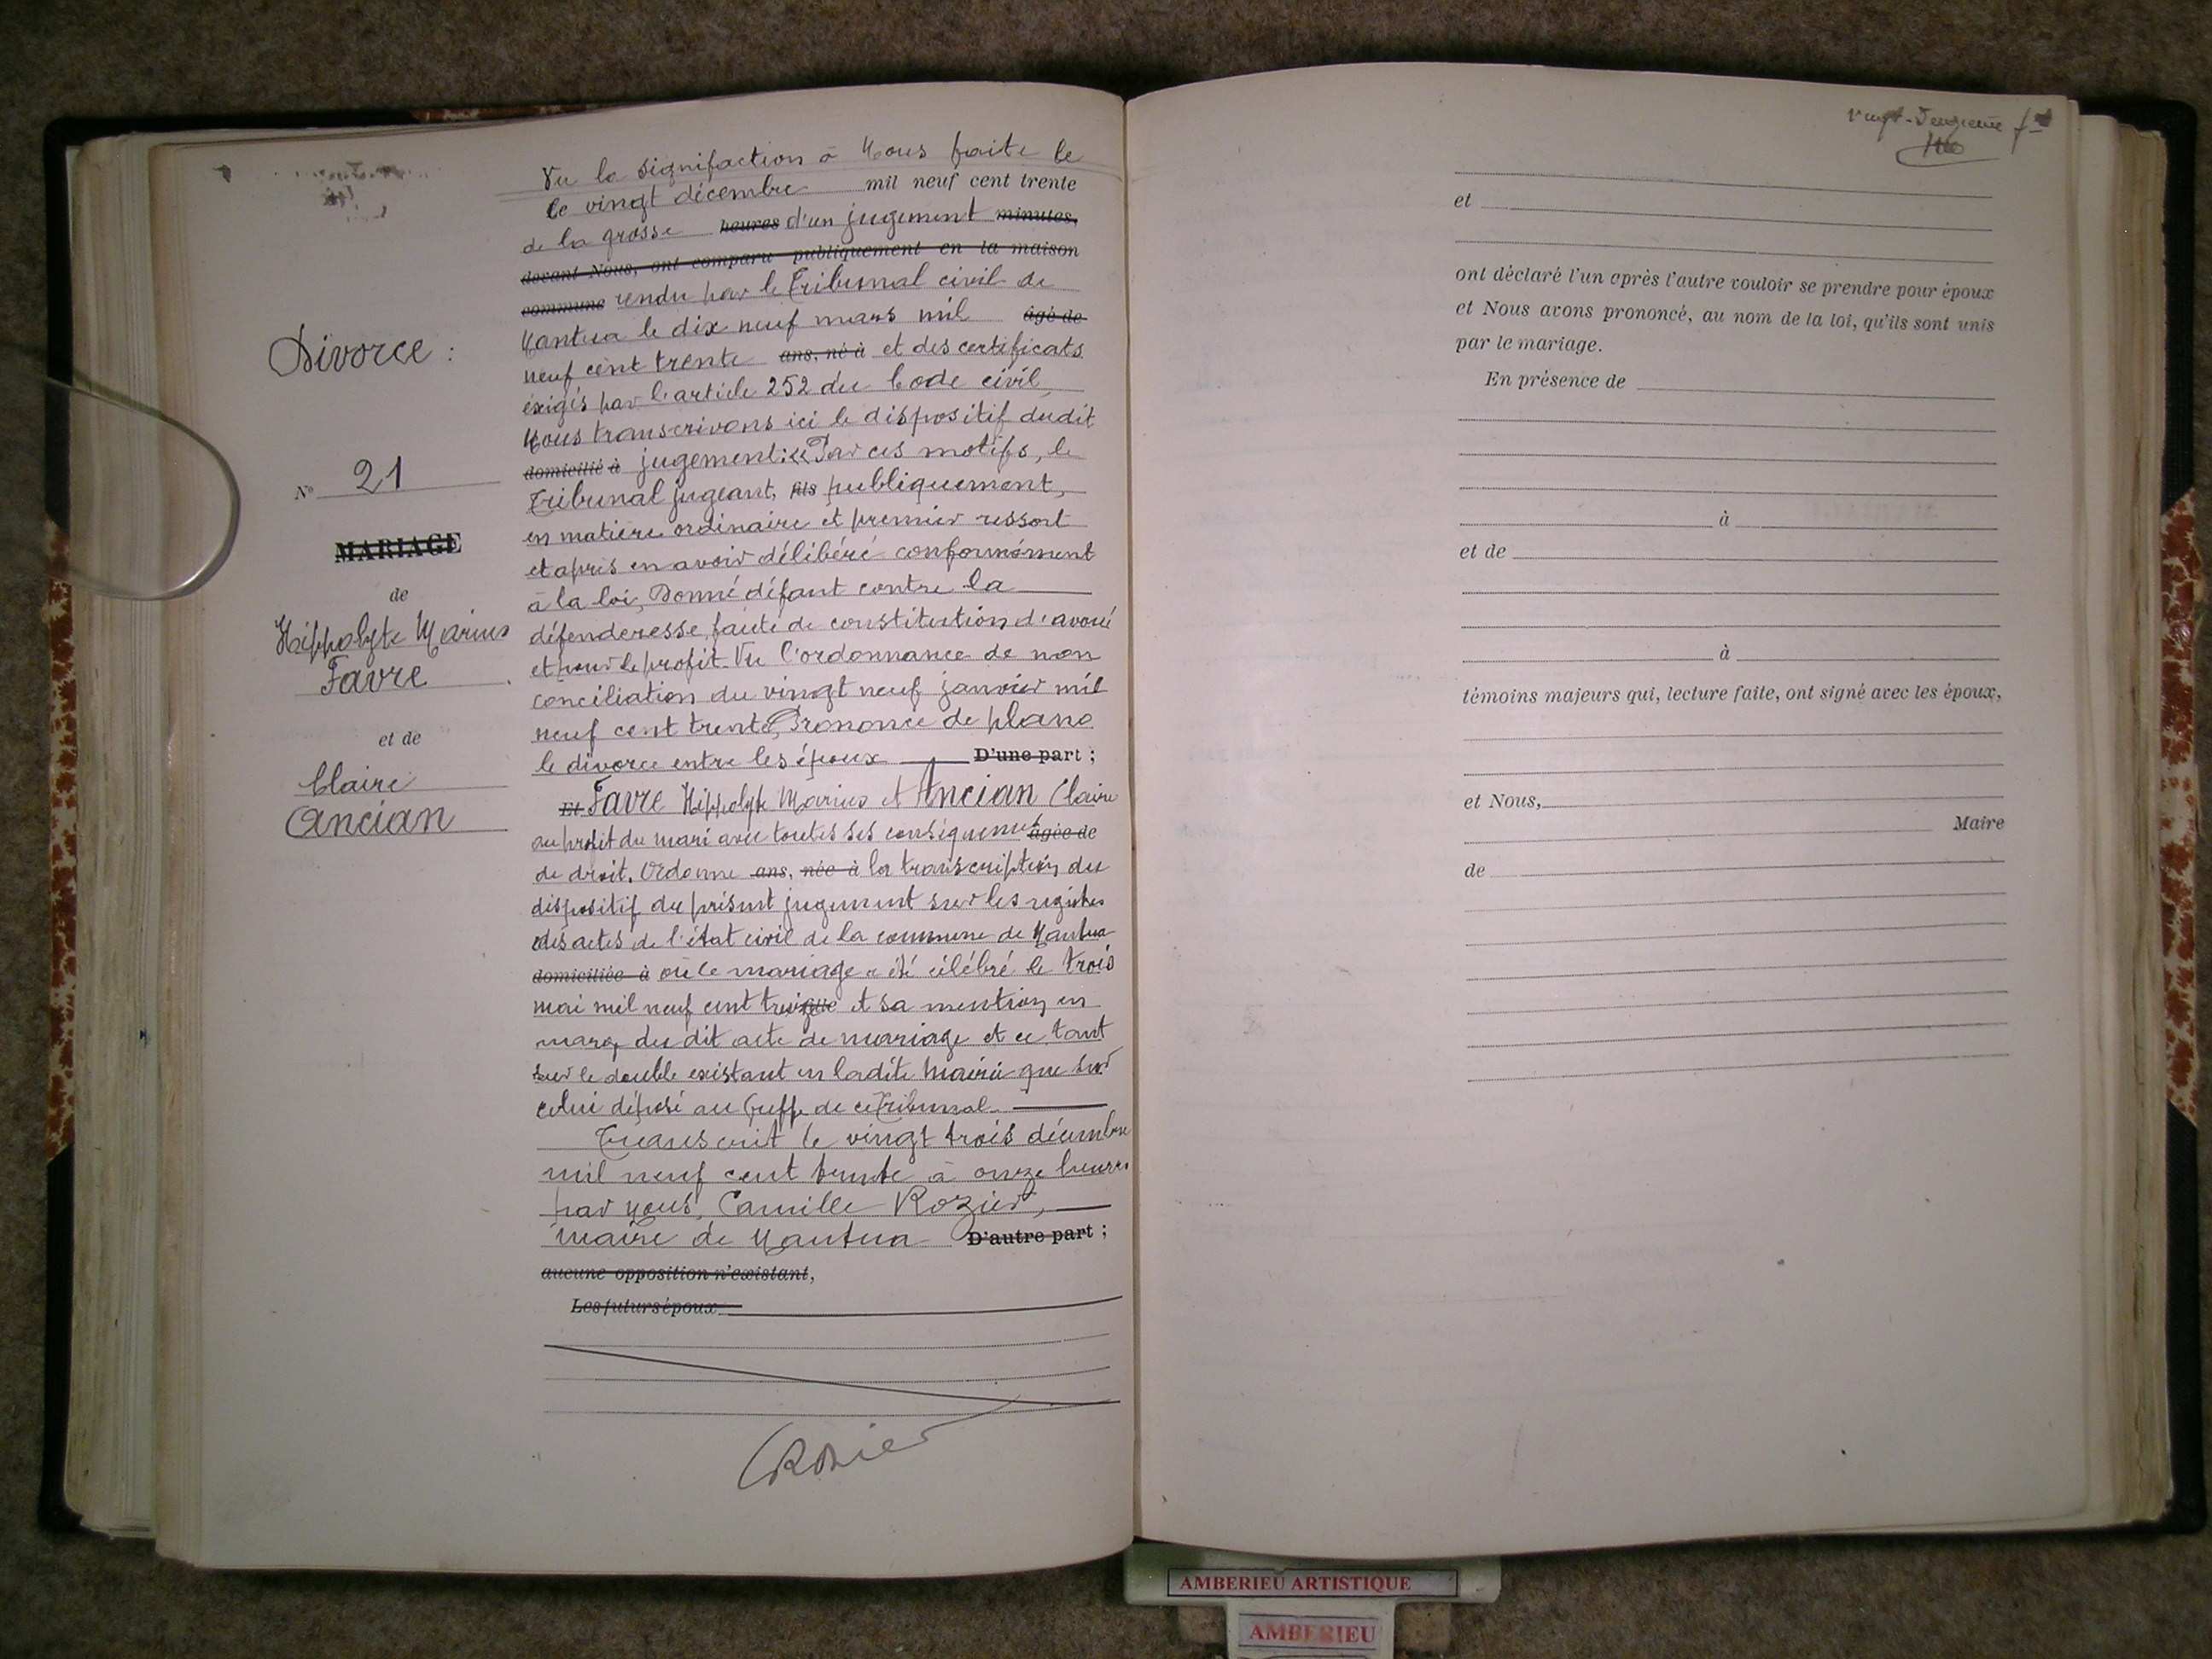 Divorce :
N° 21
MARIAGE
de
Hippolyte Marius
Favre
et de
Claire
Ancian
Vu la signifaction à Nous faite le
le vingt décembre mil neuf cent trente
de la grosse heures d'un jugement minutes,
devant Nous, ont comparu publiquement en la maison
commune rendu par le Tribunal civil de
Nantua le dix neuf mars mil âgé de
neuf cent trente ans, né à et des certificats
exigés par l'article 252 du Code civil,
Nous transcrivons ici le dispositif dudit
domicilié à jugement: « Par ces motifs, le
Tribunal jugeant, fils publiquement,
en matière ordinaire et premier ressort
et après en avoir délibéré conformément
à la loi, Donné défaut contre la
défenderesse, faute de constitution d'avoué
et pour le profit. Vu l'ordonnance de non
conciliation du vingt neuf janvier mil
neuf cent trente, Prononce de plano
le divorce entre les époux D'une part ;
Et Favre Hippolyte Marius et Ancian Claire
au profit du mari avec toutes ses conséquences âgée de
de droit. Ordonne ans, née à la transcription du
dispositif du présent jugement sur les registres
des actes de l'état civil de la commune de Nantua
domiciliée à où le mariage a été célébré le trois
mai mil neuf cent et sa mention en
marge du dit acte de mariage et ce tant
sur le double existant en ladite Mairie que sur
celui déposé au Greffe de ce Tribunal.
Transcrit le vingt trois décembre
mil neuf cent trente à onze heures
par Nous, Camille Rozier,
Maire de Nantua D'autre part ;
aucune opposition n'existant,
Les futurs époux
CRozier
vingt-deuxième ft
et
ont déclaré l'un après l'autre vouloir se prendre pour époux
et Nous avons prononcé, au nom de la loi, qu'ils sont unis
par le mariage.
En présence de
à
et de
à
témoins majeurs qui, lecture faite, ont signé avec les époux,
et Nous,
Maire
de
AMBERIEU ARTISTIQUE
AMBERIEU